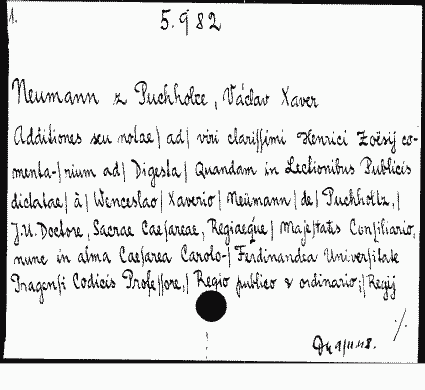 1.
5.982
Neumann z Puchholce, Václav Xaver
Additiones seu notae/ ad/ viri clarissimi Henrici Zoësij co-
menta-/rium ad/ Digesta/ Quondam in Lectionibus Publicis
dictatae/ à/ Wenceslao/ Xaverio/ Neümann/ de/ Puchholtz,/
J.U.Doctore, Sacrae Caesareae, Regiaeque/ Majestatis Consiliario,
nunc in alma Caesarea Carolo-/ Ferdinandea Universitate
Pragensi Codicis Professore,/ Regio publico & ordinario;/ Regij
./.